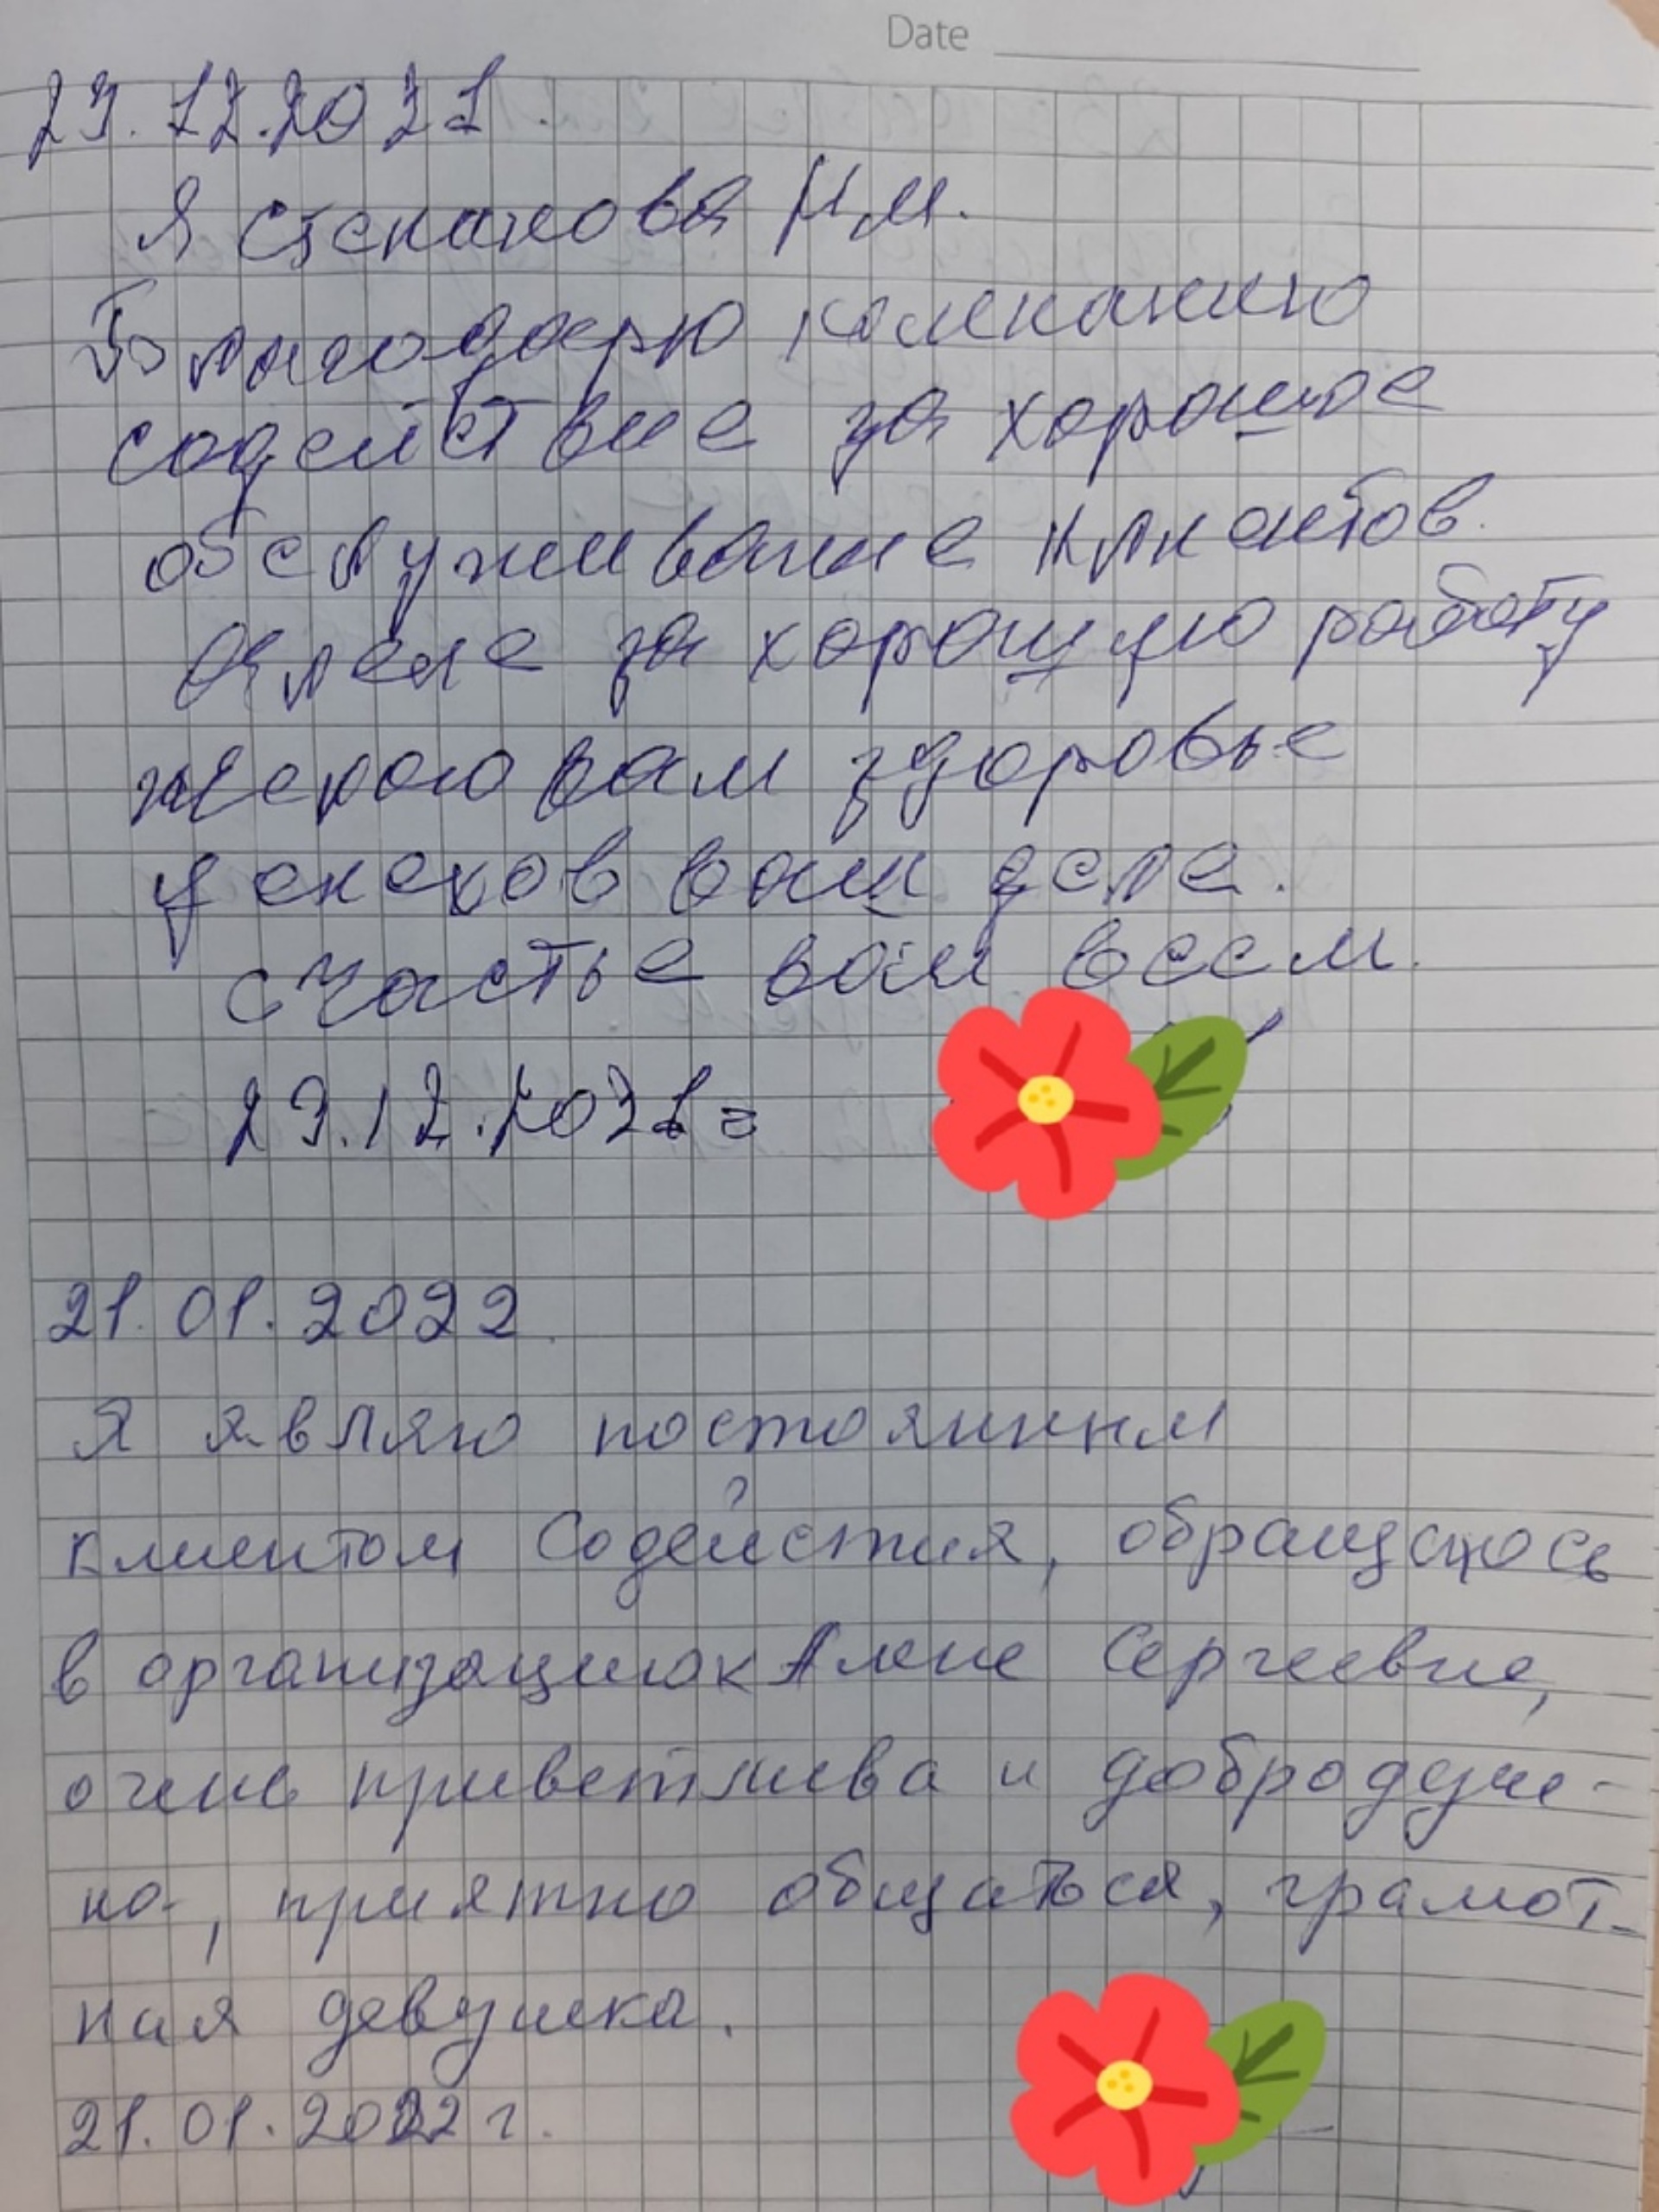 Date
23.12.2021.
Я Степанова Н М.
Благодарю компанию
содействие за хорошое
обслуживание клиентов.
Алене за хорошую работу
желаю вам здоровье
успехов ваш деле.
счастье вам всем.
23.12.2021 г
21.01.2022.
Я являю постоянным
клиентом Содейстия, обращаюсь
в организацию к Алене Сергеевне,
очень приветлива и добродуш-
на, приятно общаться, грамот-
ная девушка.
21.01.2022 г.